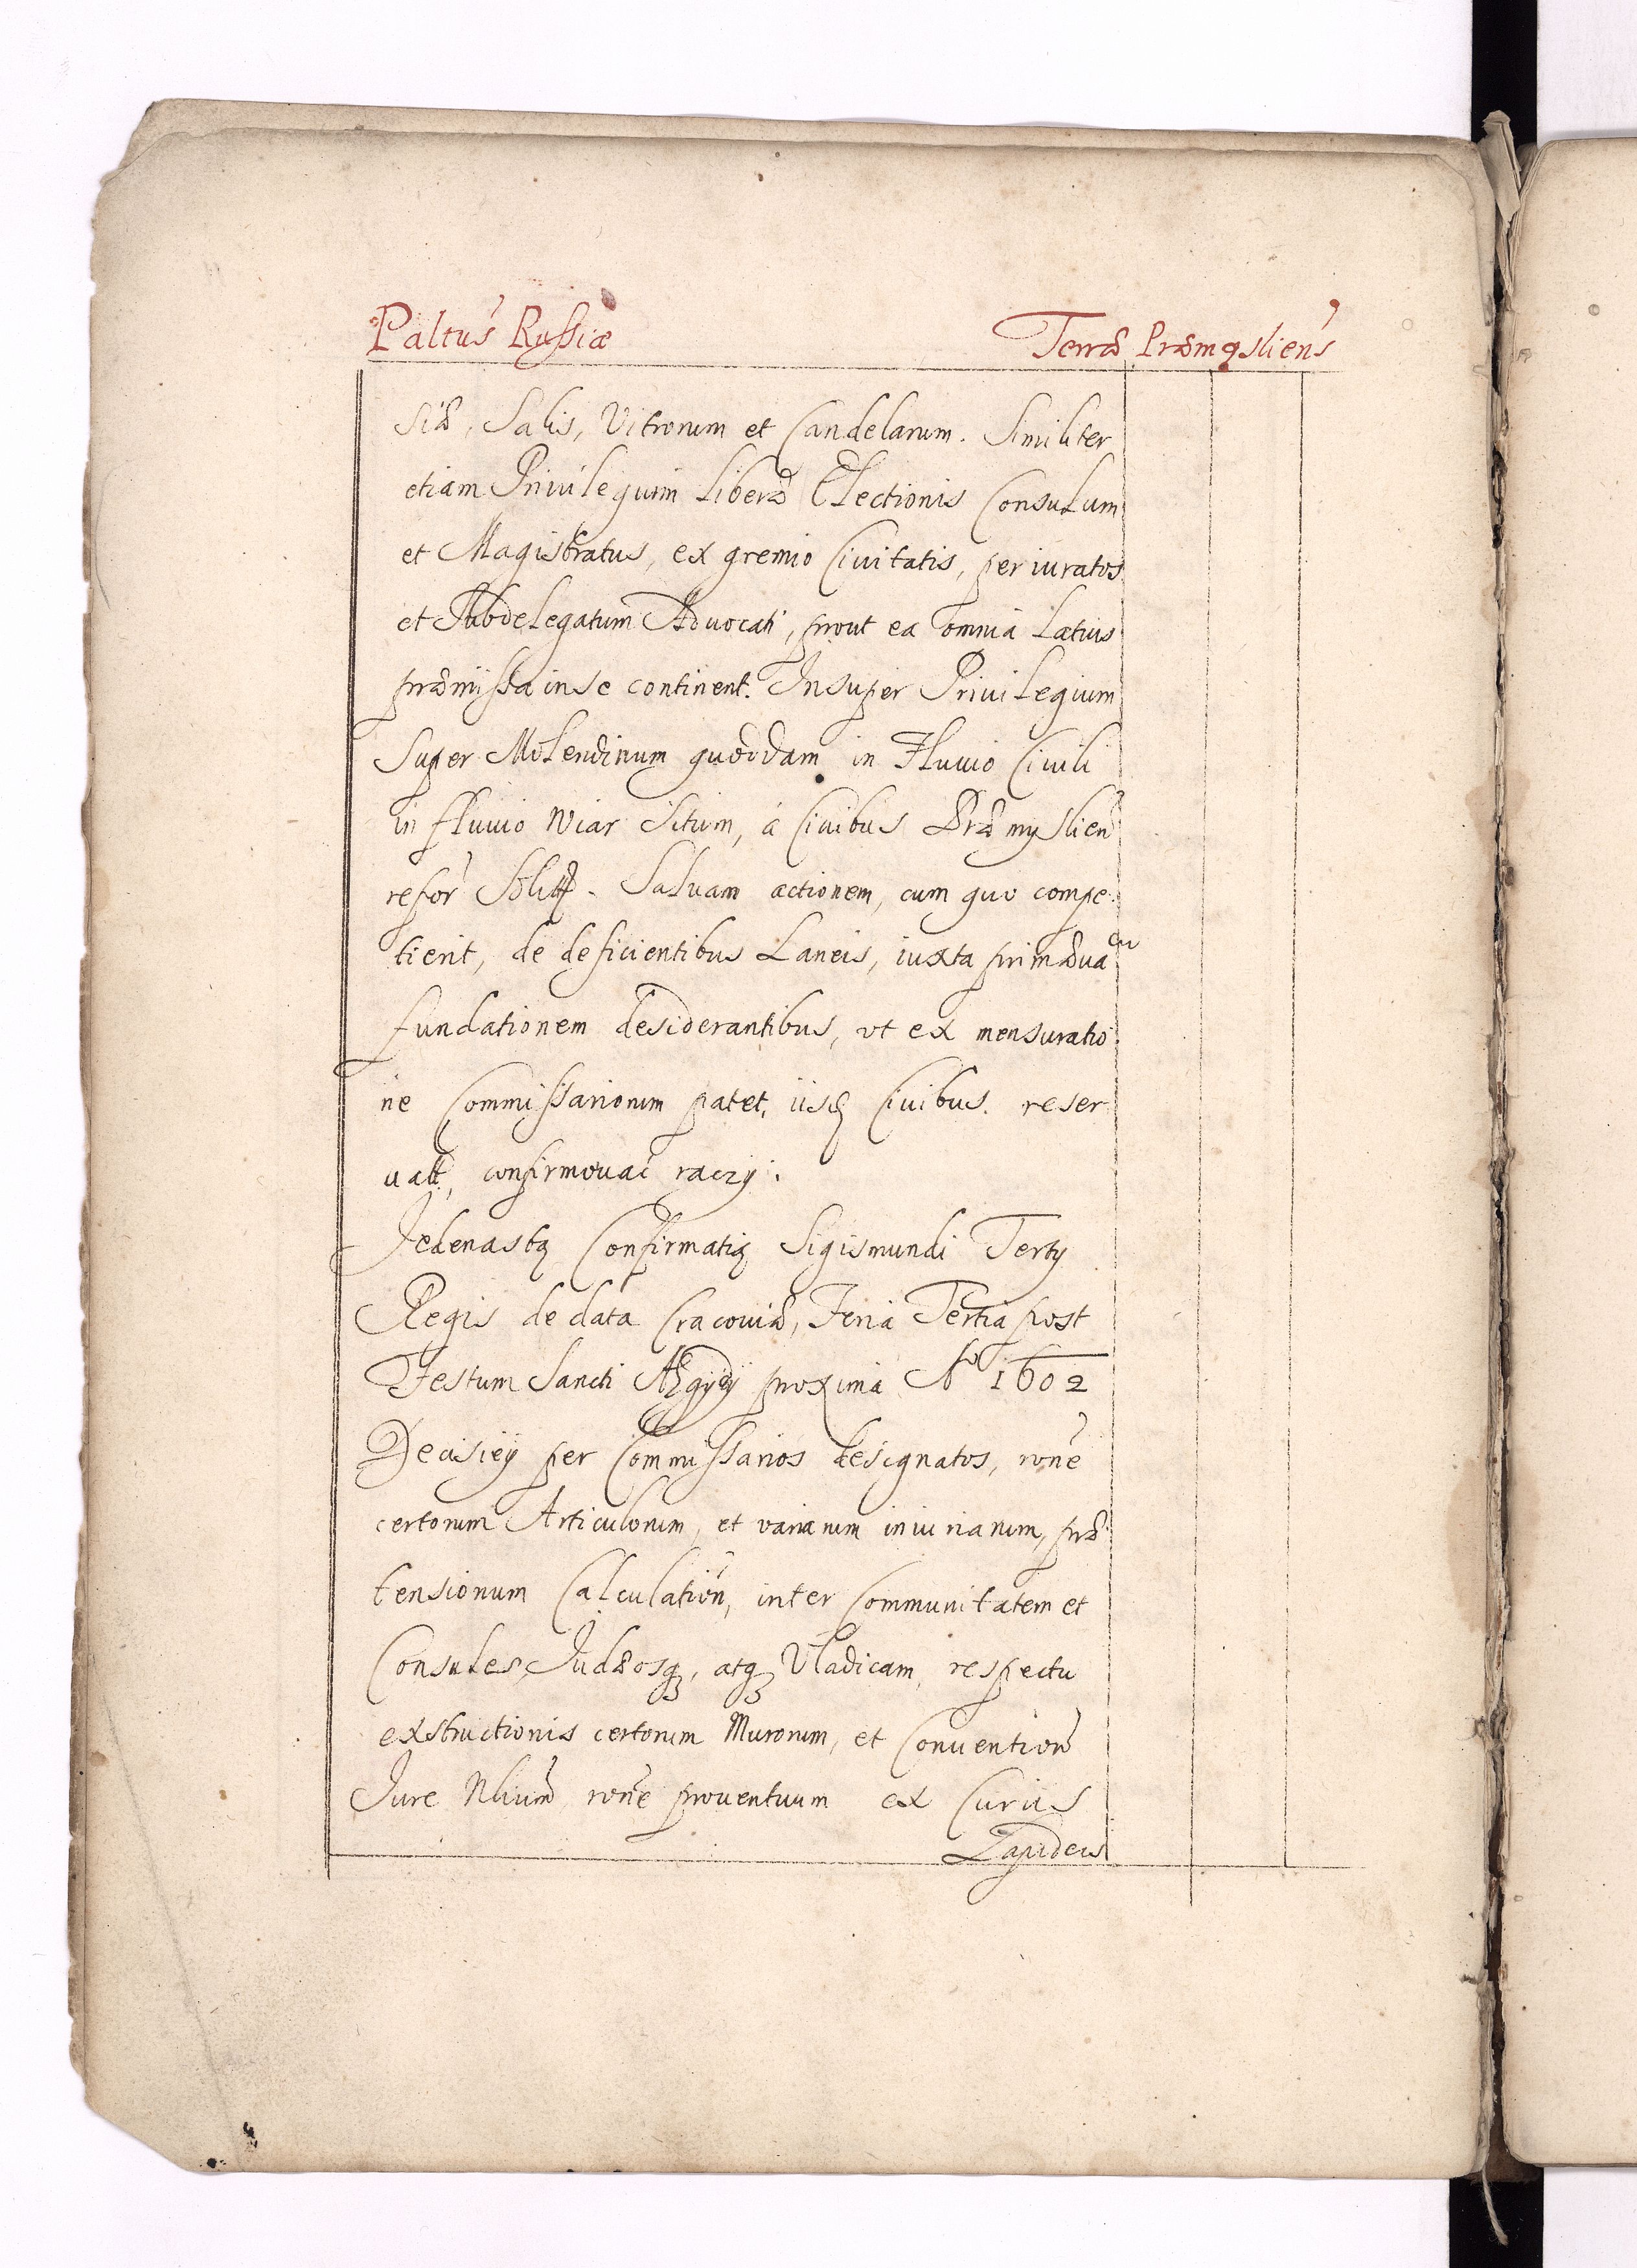 Paltus Russiæ
Terræ Præmysliens
siæ, Salis, Vitrorum et Candelarum. Similiter
etiam Priuilegium liberæ Electionis Consulum
et Magistratus, ex gremio Ciuitatis, per iuratos
et Subdelegatum Aduocati, prout ea omnia latius
præmissa in se continent. Insuper Priuilegium
super Molendinum quoddam in Fluuio Ciuili
in fluuio Wiar Situm, á Ciuibus Præmyslien
refor Solitum. Saluam actionem, cum quo compe
tierit, de deficientibus Laneis, iuxta primæuam
fundationem desiderantibus, vt ex mensuratio
ne Commissariorum patet, iisdem Ciuibus. reser
uatt, confirmouać raczy.
Jedenasta Confirmatia Sigismundi Terty
Regis de data Cracouiæ, Feria Tertia post
Festum Sancti Ægydij proxima Aº 1602
Decisiey per Commissarios designatos, rone
certorum Articulorum, et variarum iniuriarum, præ
tensionum Calculation, inter Communitatem et
Consules, Judæosq, atq Vladicam, respectu
exstructionis certorum Murorum, et Convention
Jure Nliumō rone prouentuum ex Curiis
Lapideis